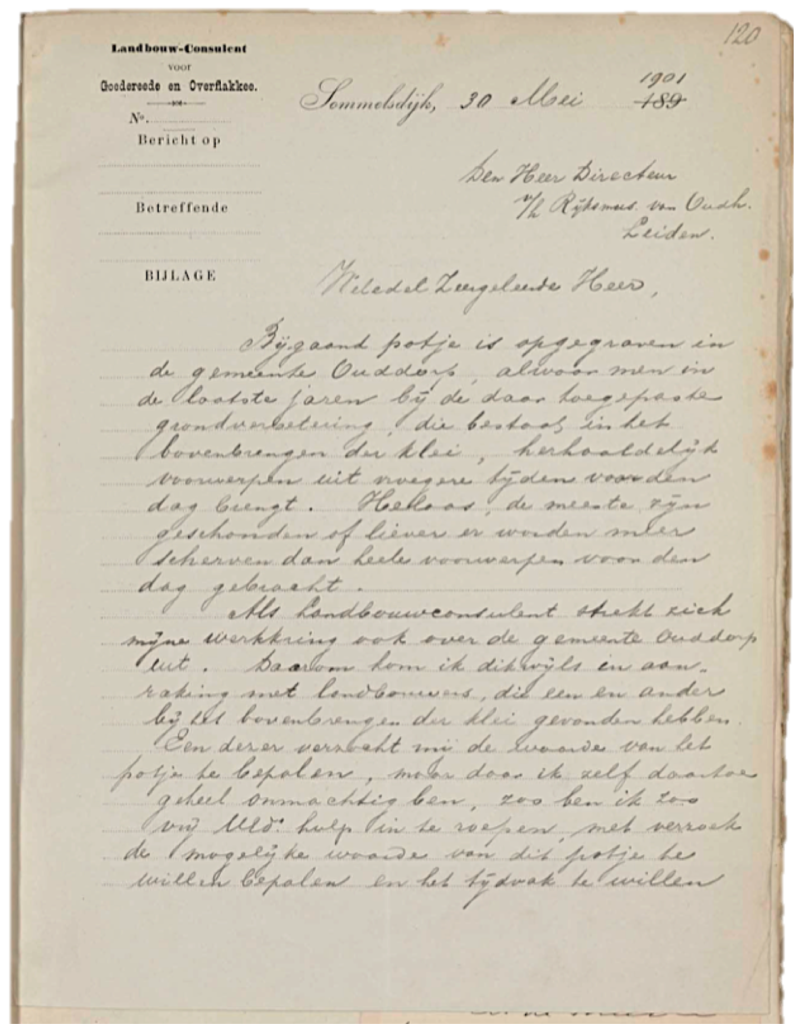 120
Landbouw-Consulent
voor
Goedereede en Overflakkee.
No.
Bericht op
Betreffende
BIJLAGE
Sommelsdijk, 30 Mei 1901
189
Den Heer Directeur
v/h Rijksmus. van Oudh.
Leiden.
Weledel Zeergeleerde Heer,
Bijgaand potje is opgegraven in
de gemeente Ouddorp, alwaar men in
de laatste jaren bij de daar toegepaste
grondverbetering, die bestaat in het
bovenbrengen der klei, herhaaldelijk
voorwerpen uit vroegere tijden voor den
dag brengt. Helaas, de meeste zijn
geschonden of liever er worden meer
scherven dan heele voorwerpen voor den
dag gebracht.
Als Landbouwconsulent strekt zich
mijne werkkring ook over de gemeente Ouddorp
uit. Daarom kom ik dikwijls in aan-
raking met landbouwers, die een en ander
bij het bovenbrengen der klei gevonden hebben.
Een dezer verzocht mij de waarde van het
potje te bepalen, maar daar ik zelf daartoe
geheel onmachtig ben, zoo ben ik zoo
vrij UEd. hulp in te roepen, met verzoek
de mogelijke waarde van dit potje te
willen bepalen en het tijdvak te willen